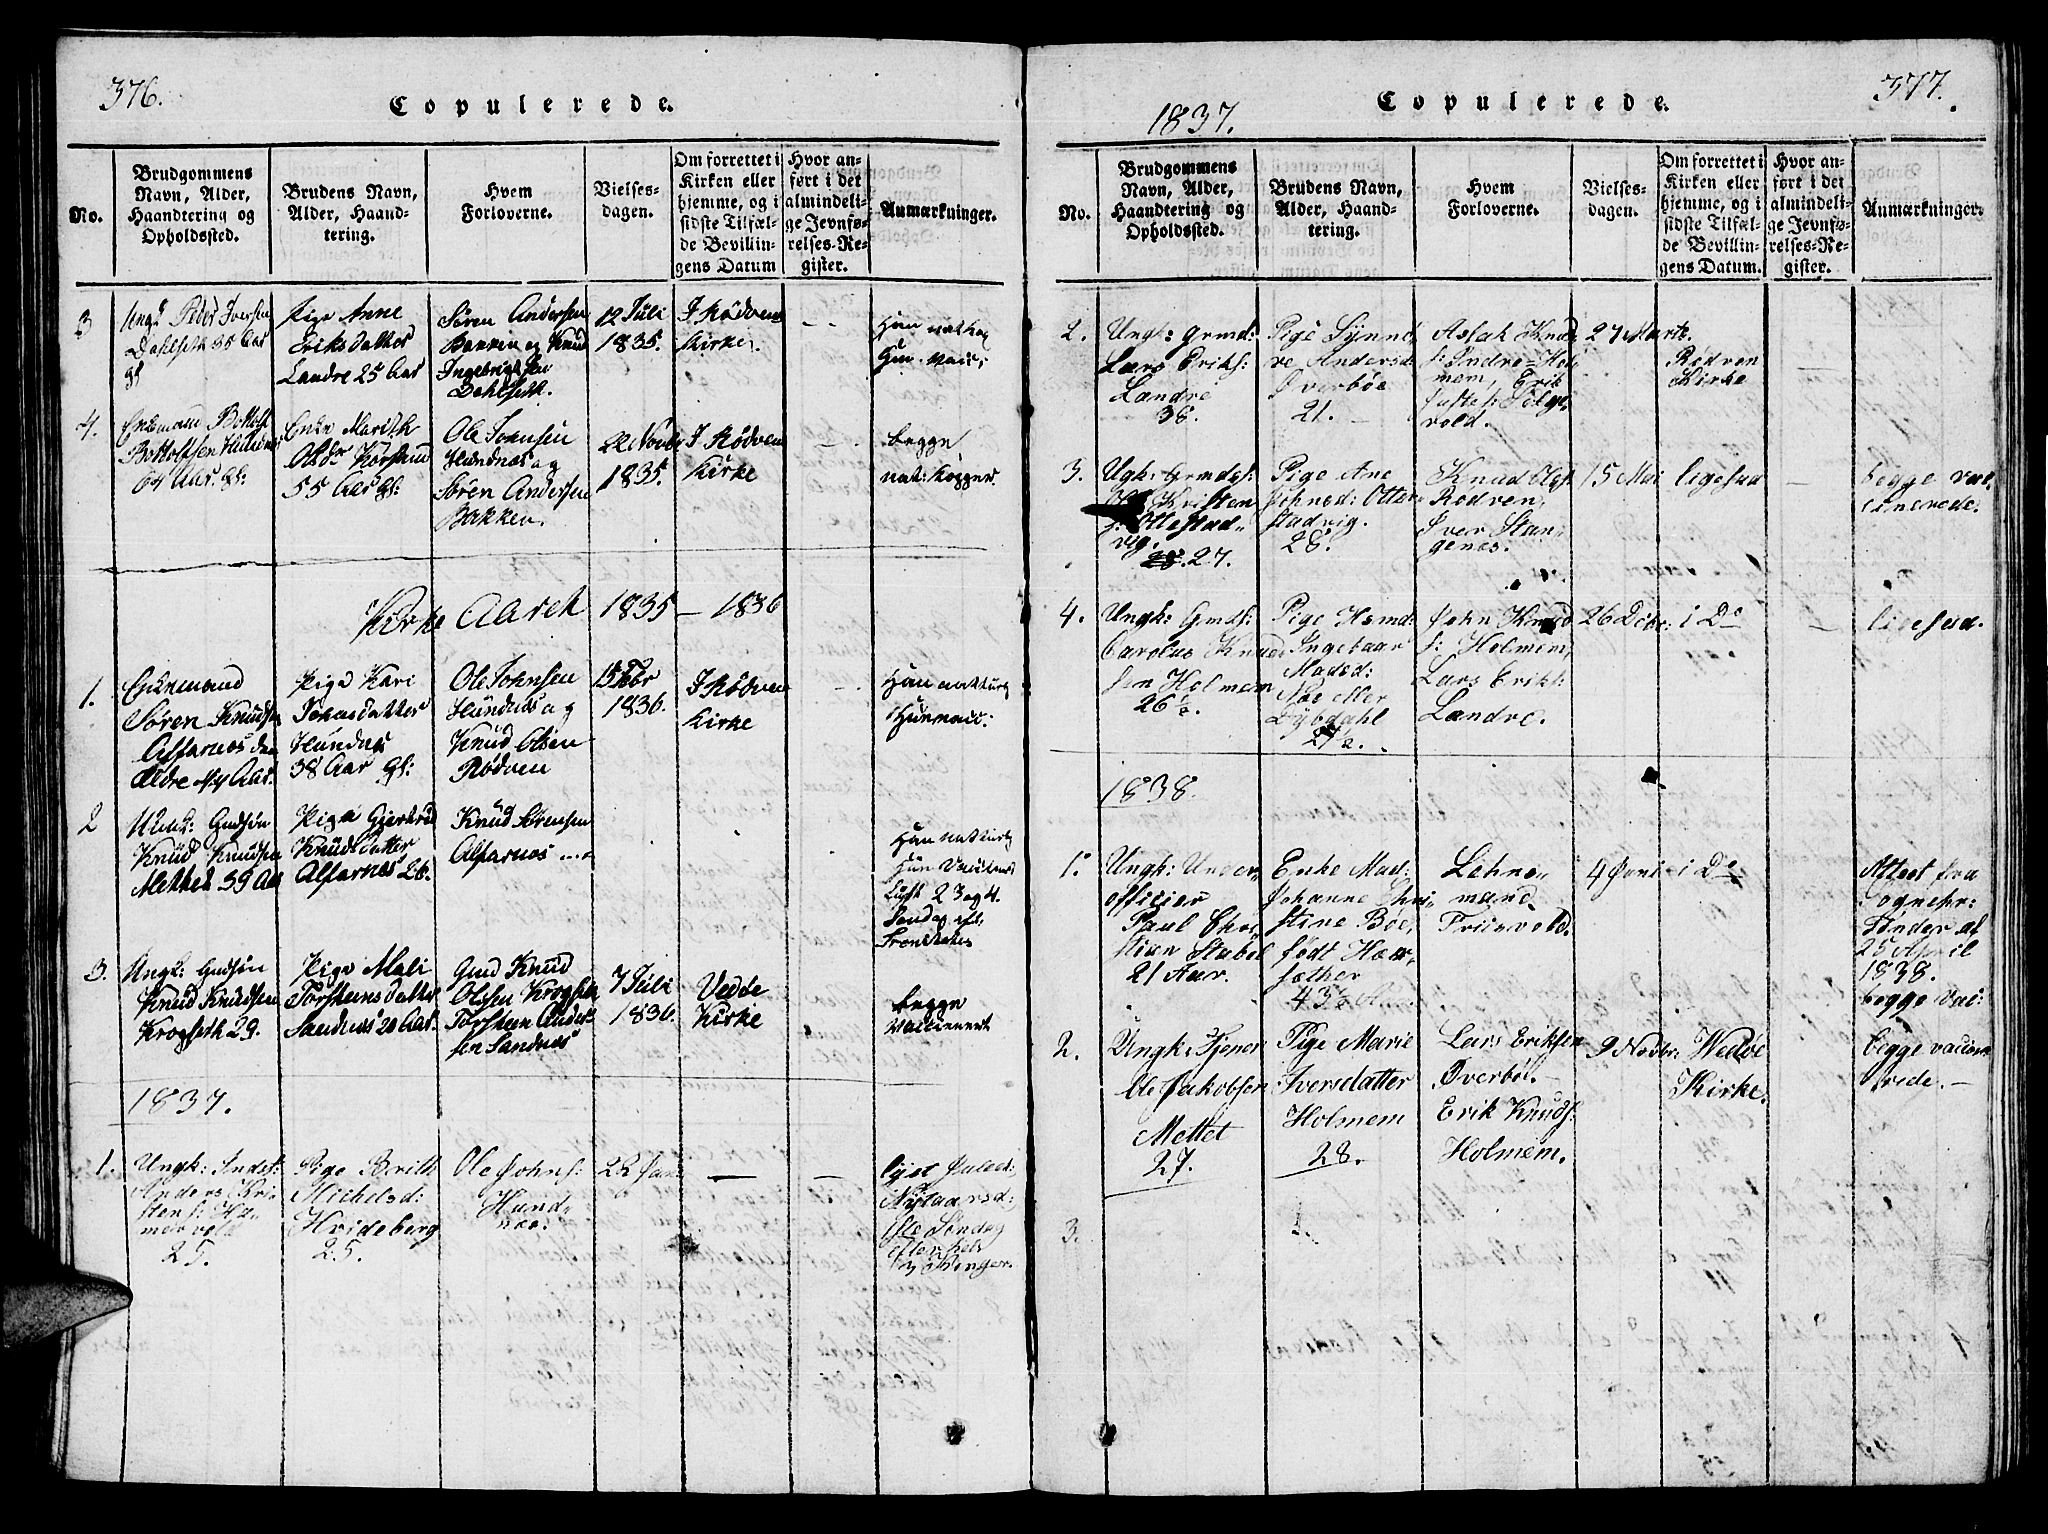 376.
Copulerede.
No.
Brudgommens
Navn, Alder,
Haandtering og
Opholdssted.
Brudens Navn,
Alder, Haand-
tering.
Hvem
Forloverne.
Vielses-
dagen.
Om forrettet i
Kirken eller
hjemme, og i
sidste Tilfæl-
de Bevillin-
gens Datum
Hvor an-
ført i det
almindeli-
ge Jevnfø-
relses-Re-
gister.
Anmærkninger.
3
Ungk Peder Iversen
Dahlseth 35 Aar
gl
Pige Anne
Eriksdatter
Landre 25 Aar
Søren Andersen
Bakken og Knud
Ingebrigtsen
Dahlseth.
12 Juli
1835.
I Rødven
Kirke.
Han nat kop
Hun vacc:
4.
Enkemand Bottolf
Bottolfsen Hundnes
64 Aar gl:
Enke Marith
Olsdr Korsham
55 Aar gl:
Ole Johnsen
Hundnes og
Søren Andersen
Bakken.
22 Novbr
1835.
I Rødven
Kirke
begge
nat: Kopper
Kirke Aaret 1835 — 1836
1.
Enkemand
Søren Knudsen
Alfarnes den
Ældre Aar.
Pige Kari
Johnsdatter
Hundnes
38 Aar gl:
Ole Johnsen
Hundnes og
Knud Olsen
Rødven
1836.
I Rødven
Kirke
Han naturl
Hun vacc:
2
Ungk: Gudsøn
Knud Knudsen
Mettet 39 Aar
Pige Gjertrud
Knudsdatter
Alfarnes 28.
Knud Sørensen
Alfarnes
Han naturl
Hun Vaccineret
Lyst 2 3 og 4.
Søndag eft.
3.
Ungk: Gudsøn
Knud Knudsen
Krogseth 29.
Pige Mali
Torsteinsdatter
Sandnes 20 Aar.
Gmd Knud
Olsen Krogseth
Torsteen Anders
sen Sandnes
7 Juli
1836.
Vedøe
Kirke
begge
Vaccineret
1837.
1.
Ungk: Inders:
Anders Kri
stens: Ha
merve
25.
Pige Brith
Michelsd:
Hvideberg
25.
Ole Johns:
Hund
nes.
22 Jan
—
—
lyst Juled:
Nytaarsd:
1ste Søndag
efter hel:
3 Konger.
377.
Copulerede.
1837.
No.
Brudgommens
Navn, Alder,
Haandtering og
Opholdssted.
Brudens Navn,
Alder, Haand-
tering.
Hvem
Forloverne.
Vielses-
dagen.
Om forrettet i
Kirken eller
hjemme, og i
sidste Tilfæl-
de Bevillin-
gens Datum.
Hvor an-
ført i det
almindeli-
ge Jevnfø-
relses-Re-
gister.
Anmærkninger.
2.
Ungk: Grmd:
Lars Eriks:
Landre
38.
Pige Synnø
ve Andersd
Øverbøe
21.
Aslak Knud
s: Indre-Hol
mem, Erik
Justes: Sølge
vold.
27 Marts.
Rødven
Kirke
—
3.
Ugk: Grmds:
Kristen
s: Ottestad
vig.
27.
Pige Ane
Johnsd: Otter
stadvig.
28.
Knud Ols:
Rødven,
Iver Stan
genes.
15 Mai
ligesaa
—
begge vac
cinerede.
4.
Ungk: Gmds:
Carolus Knud
sen Holmem
26½.
Pige Hsmd:
Ingebaar
Madsd:
Noe eller
Dybdahl
27½.
John Knud
s: Holmem,
Lars Eriks:
Landre.
26 Decbr:
i Do
—
ligesaa.
1838.
1.
Ungk: Under
officier
Paul Chri
stian Stabel
21 Aar.
Enke Mad:
Johanne Chri
stine Boe,
født Hæs
sæther
43½ A
Lehns
mand
Friisvold.
4 Juni
i Do
Attest fra
Sognepr:
Tønder af
25 April
1838.
begge vac:
2.
Ungk: Tjener
Ole Jakobsen
Mettet
27.
Pige Marie
Iversdatter
Holmem
28.
Lars Eriksen
Øverbø.
Erik Knuds:
Holmem.
9 Novbr:
Wedøe
Kirke.
begge vaccine
rede. —
3.